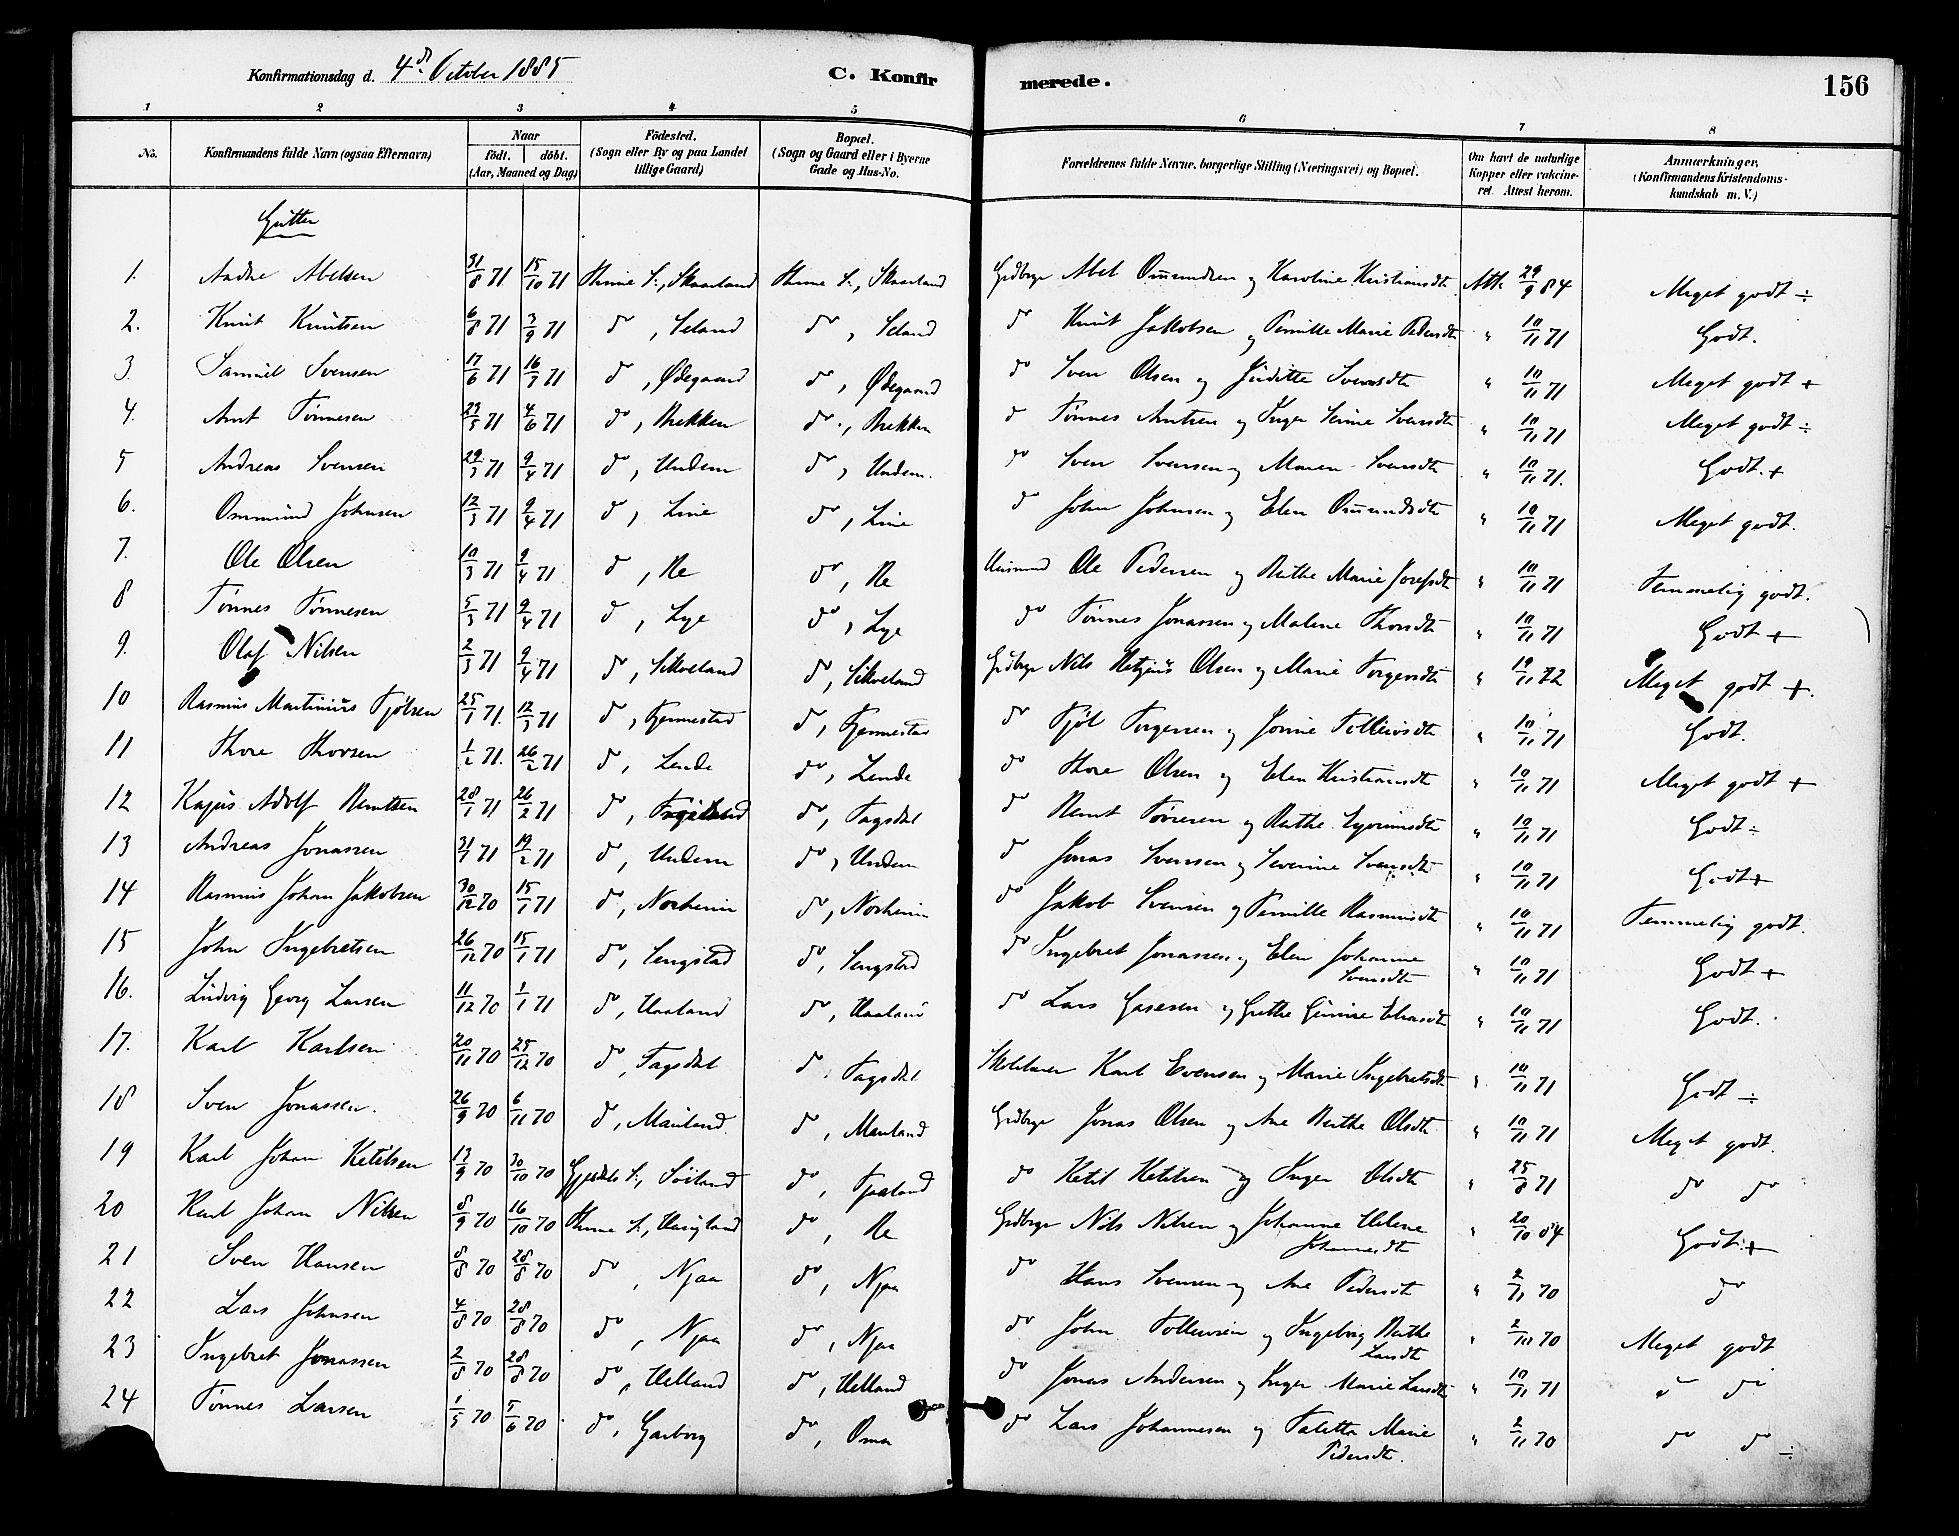 Konfirmationsdag d. 4de October 1885
C. Konfirmerede.
156
1 2 3 4 5 6 7 8
No. | Konfirmandens fulde Navn (ogsaa Efternavn) | Naar födt. döbt. (Aar, Maaned og Dag) | Födested. (Sogn eller By og paa Landet tillige Gaard) | Bopæl. (Sogn og Gaard eller i Byerne Gade og Hus-No. | Forældrenes fulde Navne, borgerlige Stilling (Næringsvei) og Bopæl. | Om havt de naturlige Kopper eller vakcineret. Attest herom. | Anmærkninger. (Konfirmandens Kristendomskundskab m. V.)
Gutter
1. Andre Abelsen 31/8 71 15/10 71 Thime S., Skaarland Thime S., Skaarland Grdbrgr Abel Ommundsen og Karoline Kristiansdt Att. 29/9 84 Meget godt ÷
2. Knut Knutsen 6/8 71 3/9 71 do, Seland do, Seland do Knut Jakobsen og Pernille Marie Pedersdt " 10/11 71 Godt.
3. Samuel Svensen 17/6 71 16/7 71 do, Ødegaard do, Ødegaard do Sven Olsen og Juditte Svensdt " 10/11 71 Meget godt +
4. Arnt Tønnesen 23/5 71 4/6 71 do, Brekken do, Brekken do Tønnes Arntsen og Inger Serine Svensdt " 10/11 71 Meget godt ÷
5 Andreas Svensen 29/3 71 9/4 71 do, Undem do, Undem. do Sven Svensen og Maren Svensdt " 10/11 71. Godt. +
6. Ommund Johnsen 12/3 71 9/4 71 do, Line do, Line do John Johnsen og Elen Ommundsdt " 10/11 71 Meget godt.
7. Ole Olsen 10/3 71 9/4 71 do, Re do, Re Husmand Ole Pedersen og Berthe Marie Josefsdt " 10/11 71 Temmelig godt.
8 Tønnes Tønnesen 5/3 71 9/4 71 do, Lye do, Lye do Tønnes Jonassen og Malene Thorsdt " 10/11 71 Godt +
9. Olaf Nilsen 2/3 71 9/4 71 do, Sikveland do, Sikveland Grdbrgr Nils Olsen og Marie Torgersdt " 19/11 72 Meget godt +.
10 Rasmus Martinius Tjølsen 25/1 71. 12/3 71 do, Tjemestad do, Tjemestad do Tjøl Torgersen og Jorine Tolleivsdt " 10/11 71 Godt.
11 Thore Thorsen 1/2 71. 26/2 71 do, Lende do, Lende do Thore Olsen og Elen Kristiansdt " 10/11 71 Meget godt +
12 Kajus Adolf Berntsen 28/1 71 26/2 71 do, do, Fagsdal do Bernt Tørresen og Berthe " 10/11 71 Godt ÷
13 Andreas Jonassen 31/1 71 19/2 71 do, Undem do, Undem do Jonas Svensen og Severine Svensdt " 10/11 71 Godt +
14 Rasmus Johan Jakobsen 30/12 70 15/1 71 do, Norheim do, Norheim do Jakob Svensen og Pernille Rasmusdt " 10/11 71 Temmelig godt.
15 John Ingebretsen 26/12 70 15/1 71 do, Lengstad do, Lengstad do Ingebret Jonassen og Elen Johanne Svensdt " 10/11 71 Godt +
16. Ludvig Georg Larsen 11/12 70 1/1 71 do, Haaland do, Haaland do Lars Gasesen og Grethe Gunine Eliasdt " 10/11 71 Godt.
17. Karl Karlsen 20/11 70 25/12 70 do, Fagsdal do, Fagsdal Skolelærer Karl Evensen og Marie Ingebretsdt " 10/11 71 Godt ÷
18 Sven Jonassen. 26/9 70 6/11 70 do, Mauland do, Mauland Grdbrgr Jonas Olsen og Ane Berthe Olsdt " 10/11 71 Meget godt.
19 Karl Johan Ketilsen 13/9 70 30/10 70 Gjesdals S., Söiland do, Tjaaland do Ketil Ketilsen og Inger Olsdt " 25/8 71 do do
20 Karl Johan Nilsen 8/9 70 16/10 70 Thime S., Haugland do, Re Grdbrgr Nils Nilsen og Johanne Helene Johannesdt " 20/10 84 Godt +
21 Sven Hansen 8/8 70 28/8 70 do, Njaa do, Njaa do Hans Svensen og Ane Pedersdt " 2/11 70 do
22 Lars Johnsen 4/8 70 28/8 70 do, Njaa do, Njaa do John Tolleivsen og Ingeborg Berthe Larsdt " 2/11 70 Meget godt
23 Ingebret Jonassen 2/8 70 28/8 70 do, Helland do, Helland do Jonas Andersen og Inger Marie Larsdt " 10/11 71 do do
24 Tønnes Larsen 1/5 70 5/6 70 do, Garborg do, Oma do Lars Johannesen og Taletta Marie Pedersdt. " 2/11 70 do do ÷